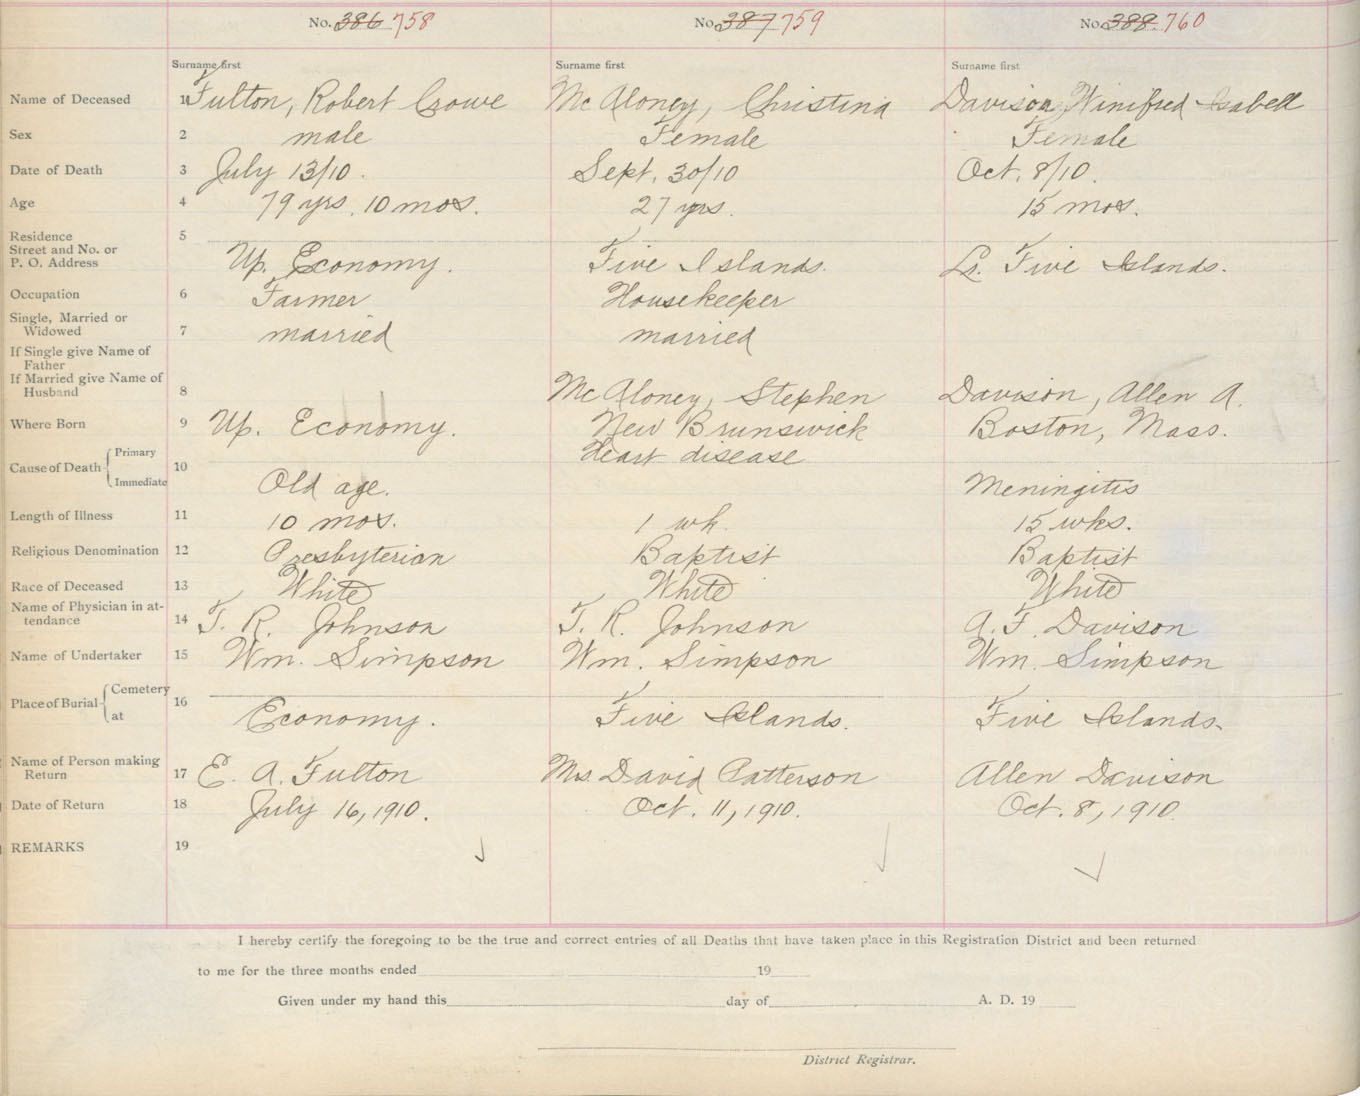 No. 386 758 No. 387 759 No. 388. 760
Surname first Surname first Surname first
Name of Deceased 1 Fulton, Robert Crowe McAloney, Christina Davison, Winifred Isabell
Sex 2 male Female Female
Date of Death 3 July 13/10. Sept. 30/10 Oct. 8/10.
Age 4 79 yrs. 10 mos. 27 yrs. 15 mos.
Residence 5
Street and No. or
P. O. Address Up. Economy. Five Islands. Lr. Five Islands.
Occupation 6 Farmer Housekeeper
Single, Married or
Widowed 7 married married
If Single give Name of
Father
If Married give Name of
Husband 8 McAloney, Stephen Davison, Allen A.
Where Born 9 Up. Economy. New Brunswick Boston, Mass.
Primary Heart disease
Cause of Death 10
Immediate Old age. Meningitis
Length of Illness 11 10 mos. 1 wk. 15 wks.
Religious Denomination 12 Presbyterian Baptist Baptist
Race of Deceased 13 White White White
Name of Physician in at-
tendance 14 T. R. Johnson T. R. Johnson A. F. Davison
Name of Undertaker 15 Wm. Simpson Wm. Simpson Wm. Simpson
Cemetery
Place of Burial 16
at Economy. Five Islands. Five Islands.
Name of Person making
Return 17 E. A. Fulton Mrs. David Patterson Allen Davison
Date of Return 18 July 16, 1910. Oct. 11, 1910. Oct. 8, 1910.
REMARKS 19
I hereby certify the foregoing to be the true and correct entries of all Deaths that have taken place in this Registration District and been returned
to me for the three months ended 19
Given under my hand this day of A. D. 19
District Registrar.